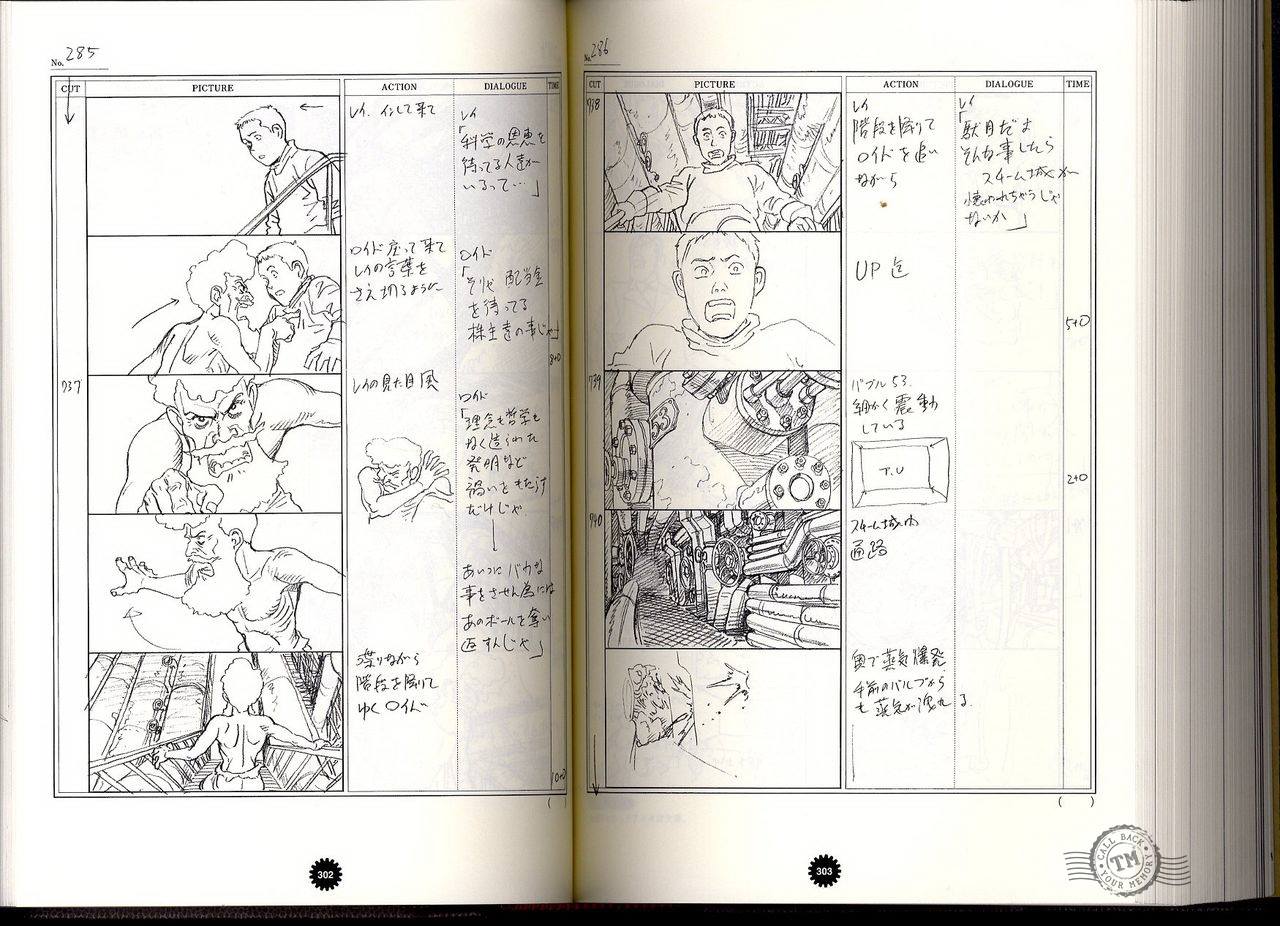 No. 285
CUT PICTURE ACTION DIALOGUE TIME
レイ、インして来て
レイ
「科学の恩恵を
待ってる人達が
いるって…」
ロイド 座って来て
レイの言葉を
さえ切るように
ロイド
「そりゃ 配当金
を待ってる
株主達の事じゃ」
8+0
737
レイの見た目風
ロイド
「理念も哲学も
なく造られた
発明など
禍いをもたらす
だけじゃ
あいつにバカな
事をさせん為には
あのボールを奪い
返すんじゃ」
喋りながら
階段を降りて
ゆくロイド
10+0
( )
302
No. 286
CUT PICTURE ACTION DIALOGUE TIME
738
レイ
階段を降りて
ロイドを追い
ながら
レイ
「駄目だよ
そんな事したら
スチーム城が
壊われちゃうじゃ
ないか」
UP 迄
5+0
739
バブル 53.
細かく震動
している
T.U
2+0
740
スチーム城内
通路
奥で蒸気爆発
手前のバルブから
も蒸気が洩れる
( )
303
CALL BACK
TM
YOUR MEMORY